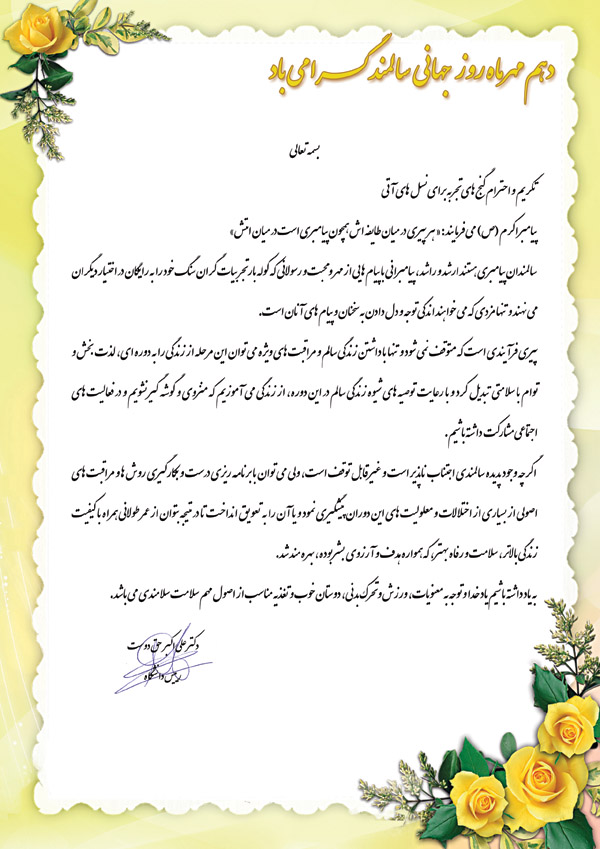 دهم مهرماه روز جهانی سالمند گرامی باد
بسمه تعالی
تکریم و احترام گنج های تجربه برای نسل های آتی
پیامبر اکرم (ص) می فرمایند: « هر پیری در میان طایفه اش همچون پیامبری است در میان امتش»
سالمندان پیامبری هستند ارشد و راشد، پیامبرانی با پیام هایی از مهر و محبت و رسولانی که کوله بار تجربیات گران سنگ خود را به رایگان در اختیار دیگران
می نهند و تنها مزدی که می خواهند اندکی توجه و دل دادن به سخنان و پیام های آنان است.
پیری فرآیندی است که متوقف نمی شود و تنها با داشتن زندگی سالم و مراقبت های ویژه می توان این مرحله از زندگی را به دوره ای، لذت بخش و
توام با سلامتی تبدیل کرد و با رعایت توصیه های شیوه زندگی سالم در این دوره، از زندگی می آموزیم که منزوی و گوشه گیر نشویم و در فعالیت های
اجتماعی مشارکت داشته باشیم.
اگرچه وجود پدیده سالمندی اجتناب ناپذیر است و غیرقابل توقف است، ولی می توان با برنامه ریزی درست و بکارگیری روش ها و مراقبت های
اصولی از بسیاری از اختلالات و معلولیت های این دوران پیشگیری نمود و یا آن را به تعویق انداخت تا در نتیجه بتوان از عمر طولانی همراه با کیفیت
زندگی بالاتر، سلامت و رفاه بهتر، که همواره هدف و آرزوی بشر بوده، بهره مند شد.
به یاد داشته باشیم یاد خدا و توجه به معنویات، ورزش و تحرک بدنی، دوستان خوب و تغذیه مناسب از اصول مهم سلامت سلامندی می باشد.
دکتر علی اکبر حق دوست
رییس دانشگاه